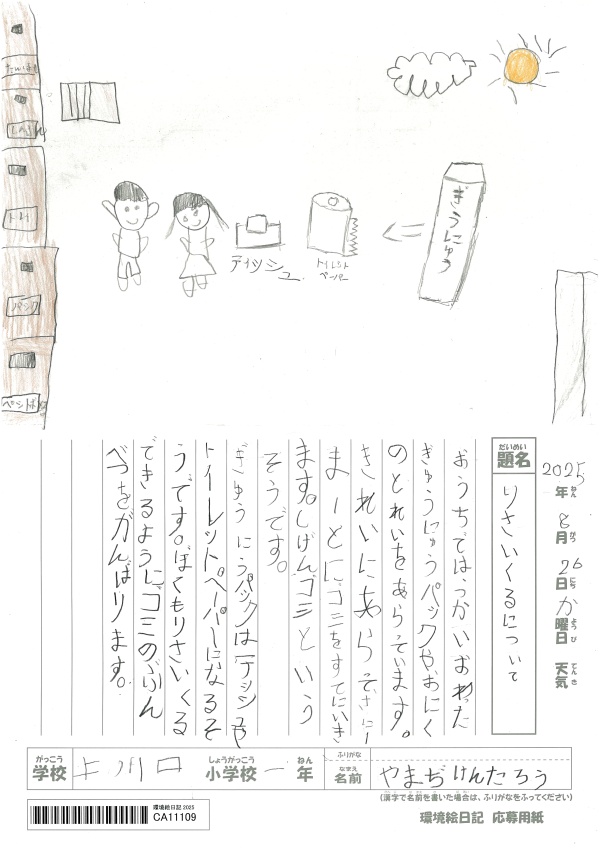 ぎうにゅう
ティッシュ
トイレット
ペーパー
パック
2025年ねん 8月がつ 26日にち か曜日ようび 天気てんき
だいめい
題名
りさいくるについて
おうちでは、つかいおわった
ぎゅうにゅうパックや、おにく
のとれいをあらっています。
きれいにあらって、さにー
まーとにゴミをすてにいき
ます。しげんゴミという
そうです。
ぎゅうにうパックは、ティッシュや
トイーレットペーパーになるそ
うです。ぼくもりさいくる
できるように、ゴミのぶん
べつをがんばります。
がっこう
学校
しょうがっこう
小学校
一
ねん
年
ふりがな
なまえ
名前
やまぢけんたろう
(漢字で名前を書いた場合は、ふりがなをふってください)
環境絵日記 2025
CA11109
環境絵日記 応募用紙